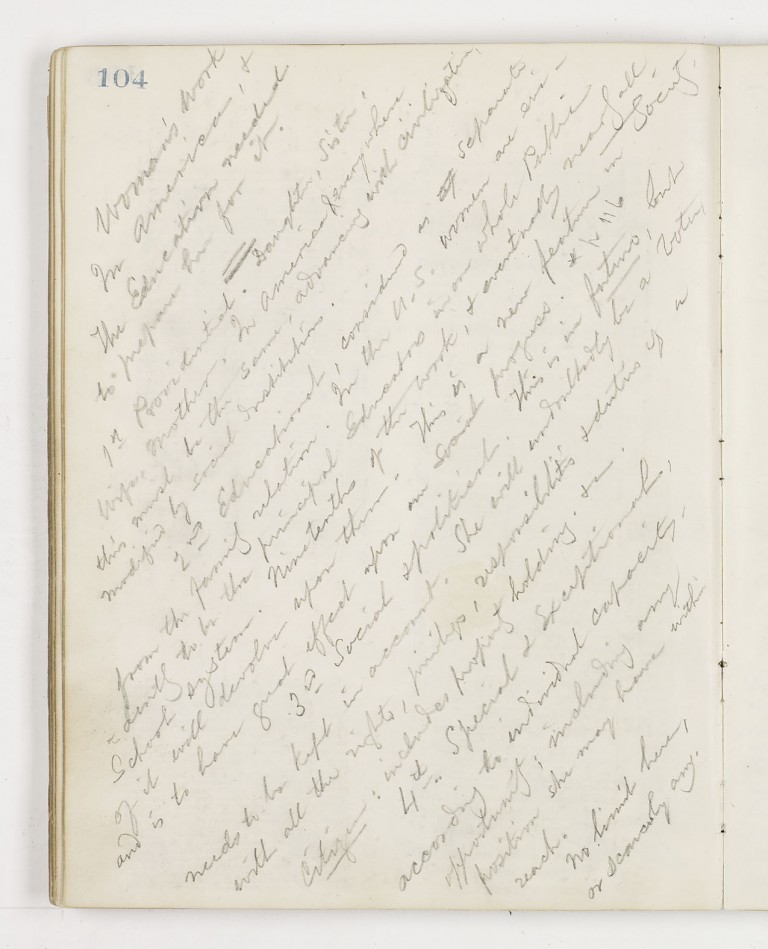 104
Woman's Work
In America, &
The Education needed
to prepare her for it.
1st Providential. Daughter, Sister,
Wife, Mother. In America & everywhere
this must be the same, advancing with civilization,
modified by social Institutions.
2nd Educational, considered as separate
from the family relation. In the U.S. women are evi-
-dently to be the principal Educators in our whole Public
School system. Nine tenths of the work, & eventually nearly all
of it will devolve upon them. This is a new feature in Society.
and is to have great effect upon our Social progress. * p 116
3d Social & political. This is in future, but
needs to be kept in account. She will undoubtedly be a voter,
with all the rights, privileges, responsibilities & duties of a
Citizen: includes property holding. &c.
4th Special & Exceptional,
according to individual capacity,
opportunity; including any
position she may have with
reach.
No limit here,
or scarcely any.